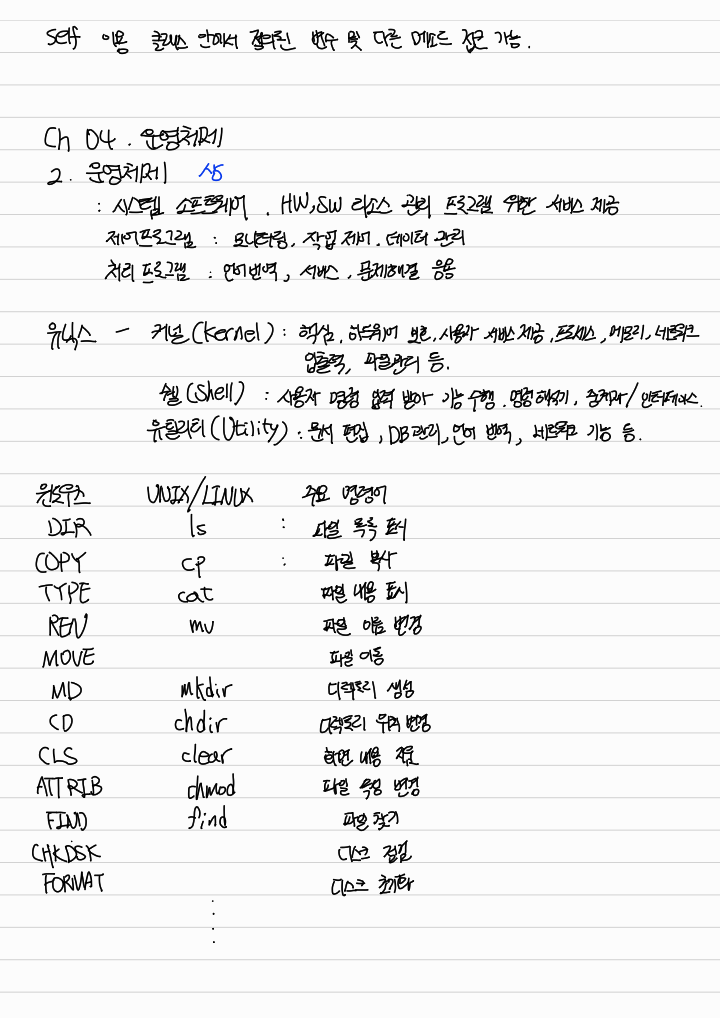 Self 이용 클래스 안에서 정의된 변수 및 다른 메소드 접근 가능.
Ch 04. 운영체제
2. 운영체제 상
: 시스템 소프트웨어. HW,SW 리소스 관리 프로그램 위한 서비스 제공
제어프로그램 : 모니터링, 작업 제어, 데이터 관리
처리 프로그램 : 언어번역, 서비스, 문제해결 응용
유닉스 - 커널(Kernel) : 핵심, 하드웨어 보호, 사용자 서비스 제공, 프로세스, 메모리, 네트워크
입출력, 파일관리 등.
쉘(Shell) : 사용자 명령 입력 받아 기능 수행. 명령해석기, 중계자/인터페이스.
유틸리티(Utility) : 문서 편집, DB관리, 언어 번역, 네트워크 기능 등.
윈도우즈 UNIX/LINUX 주요 명령어
DIR ls : 파일 목록 표시
COPY cp : 파일 복사
TYPE cat 파일 내용 표시
REN mv 파일 이름 변경
MOVE 파일 이동
MD mkdir 디렉토리 생성
CD chdir 디렉토리 위치 변경
CLS clear 화면 내용 지움
ATTRIB chmod 파일 속성 변경
FIND find 파일 찾기
CHKDSK 디스크 점검
FORMAT 디스크 초기화